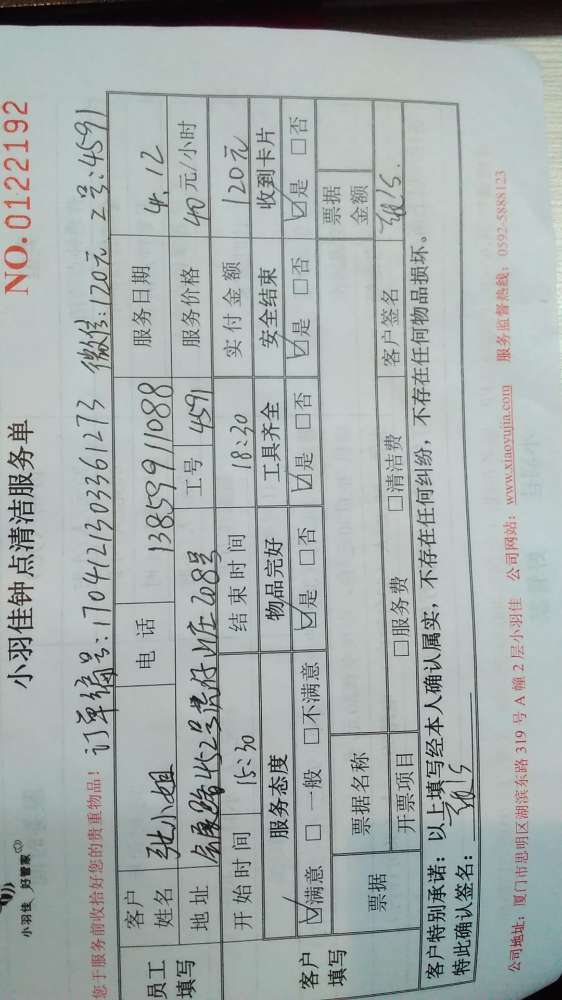 小羽佳 好管家
小羽佳钟点清洁服务单
NO.0122192
您于服务前收拾好您的贵重物品!
订单编号:1704121303361273 微信:120元 工号:4591
员工填写
客户姓名 张小姐 电话 13859911088 服务日期 4.12
地址 452号 208号 工号 4591 服务价格 40元/小时
开始时间 15:30 结束时间 18:30 实付金额 120元
客户填写
服务态度 物品完好 工具齐全 安全结束 收到卡片
☑满意 □一般 □不满意 ☑是 □否 ☑是 □否 ☑是 □否 ☑是 □否
票据 票据名称 票据金额
开票项目 □服务费 □清洁费 客户签名
客户特别承诺:以上填写经本人确认属实,不存在任何纠纷,不存在任何物品损坏。
特此确认签名:
公司地址:厦门市思明区湖滨东路 319 号 A 幢 2 层小羽佳 公司网站:www.xiaoyujia.com 服务监督热线:0592-5888123